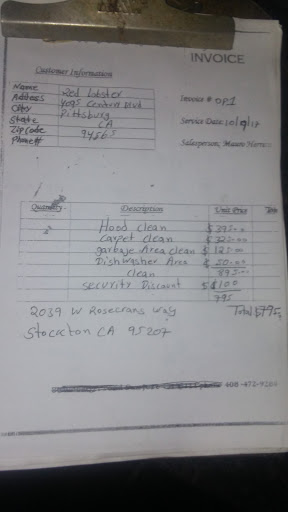 INVOICE
Customer Information
Name Red Lobster
Address Century Blvd
City Pittsburg
State CA
Zip Code 94565
Phone#
Invoice # OP1
Service Date:
Salesperson:
Quantity Description Unit Price
Hood clean $395.00
carpet clean $325.00
garbage Area clean $125.00
Dishwasher Area $50.00
clean 895.00
security Discount $100
795
Total $795
2039 W Rosecrans Way
Stockton CA 95207
408-472-9204